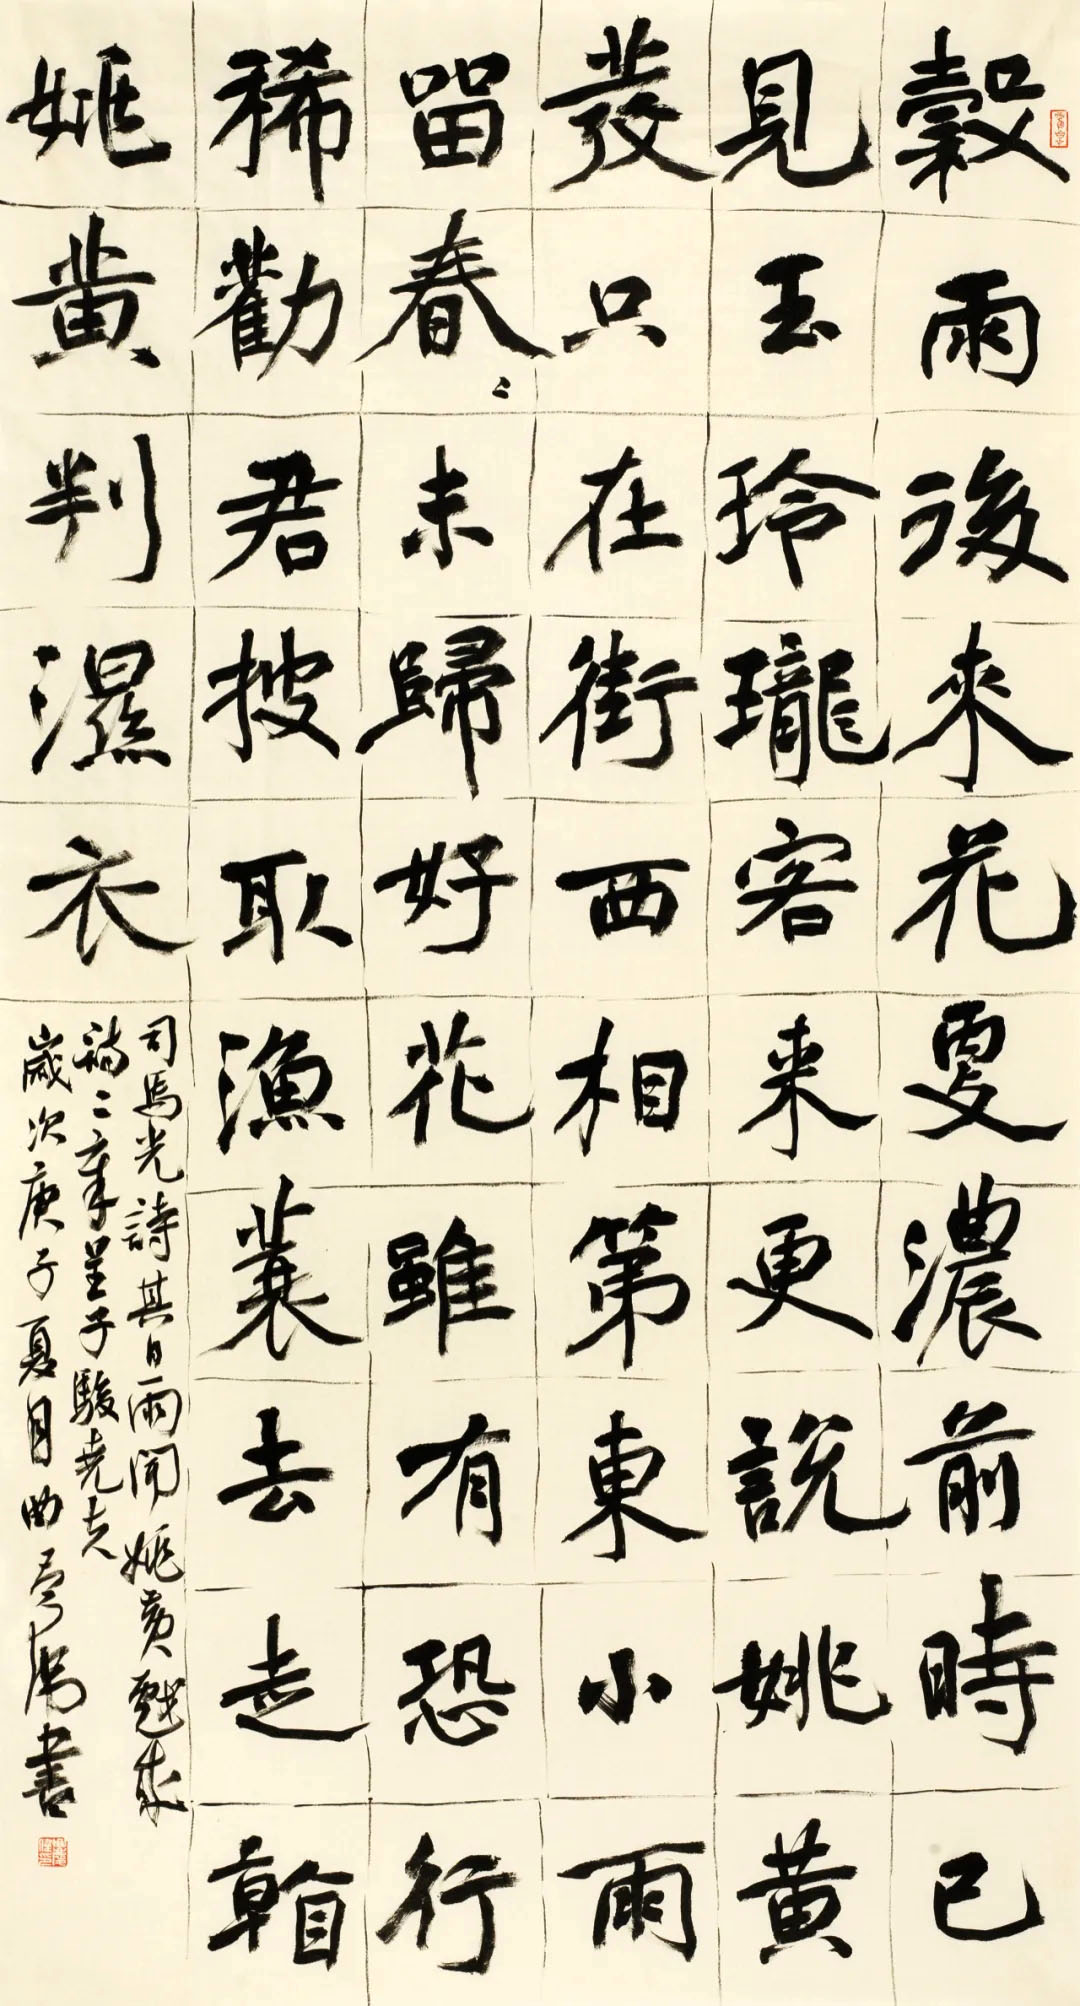 穀雨後來花更濃前時已
見玉玲瓏客来更說姚黄
發只在街西相第東小雨
留春〻未歸好花雖有恐行
稀勸君披取漁蓑去走看
姚黄判濕衣
司馬光詩其日雨聞姚黄戲成
二章呈子駿堯夫
歲次庚子夏月曲書